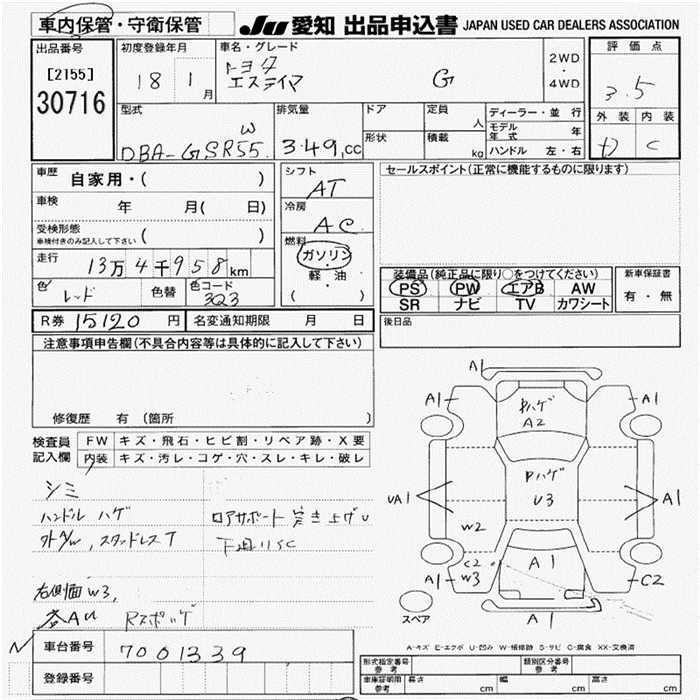 車内保管・守衛保管
JU 愛知 出品申込書 JAPAN USED CAR DEALERS ASSOCIATION
出品番号
[2155]
30716
初度登録年月
18 1 月
車名・グレード
トヨタ
エスティマ G
2WD
・
4WD
評価点
3.5
外装 内装
D C
型式
DBA-GSR55 W
排気量
3.49,cc
ドア
形状
定員 人
積載 kg
ディーラー・並行
モデル年式 年
ハンドル 左・右
車歴 自家用・( )
車検 年 月( 日)
受検形態
車検付きのみ記入して下さい ( )
走行 13万4千958km
色 レッド 色替 色コード 3Q3
シフト
AT
冷房
AC
燃料
ガソリン
・
軽・油
( )
セールスポイント(正常に機能するものに限ります)
装備品(純正品に限り○をつけてください)
PS PW エアB AW
SR ナビ TV カワシート
新車保証書
有・無
R券 15120 円 名変通知期限 月 日
後日品
注意事項申告欄(不具合内容等は具体的に記入して下さい)
修復歴 有 (箇所 )
検査員記入欄
FW キズ・飛石・ヒビ割・リペア跡・X要
内装 キズ・汚レ・コゲ・穴・スレ・キレ・破レ
シミ
ハンドル ハゲ
外AW,スタッドレスT
ロアサポート 突き上げU
下廻りSC
右側面W3,
各AU Rスポハゲ
A1
A1 A1
Pハゲ
A2
Pハゲ
U3
UA1 A1
W2
C2
A1 W3
A1
C2
A1
スペア
A-キズ E-エクボ U-凹み W-補修跡 S-サビ C-腐食 XX-交換済
車台番号 7001339
登録番号
形式指定番号
参考
類別区分番号
参考
車庫証明用
参考
長さ cm 幅 cm 高さ cm